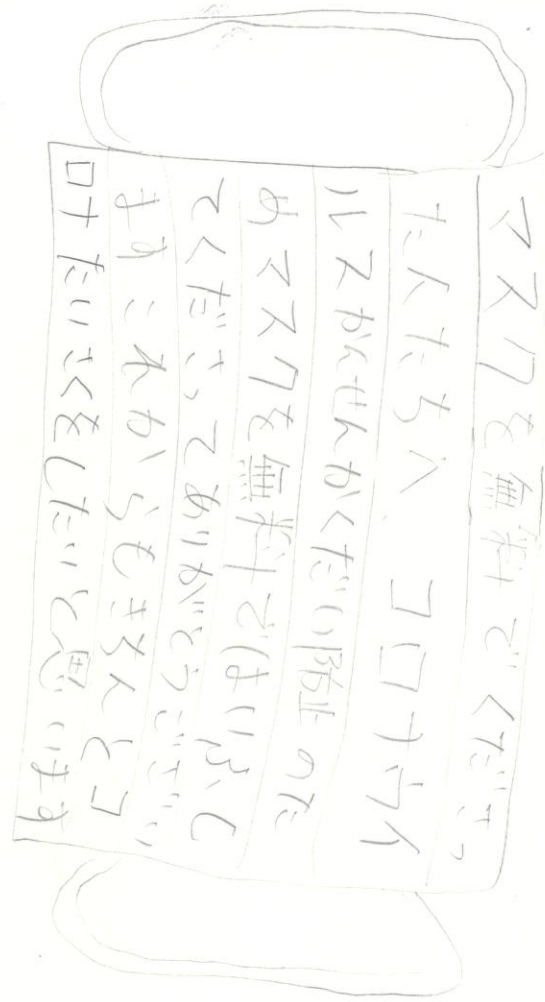 マスクを無料でくださっ
た人たちへ コロナウイ
ルスかんせんかくだい防止のた
めマスクを無料ではいふし
てくださってありがとうござい
ます これからもきちんとコ
ロナたいさくをしたいと思います